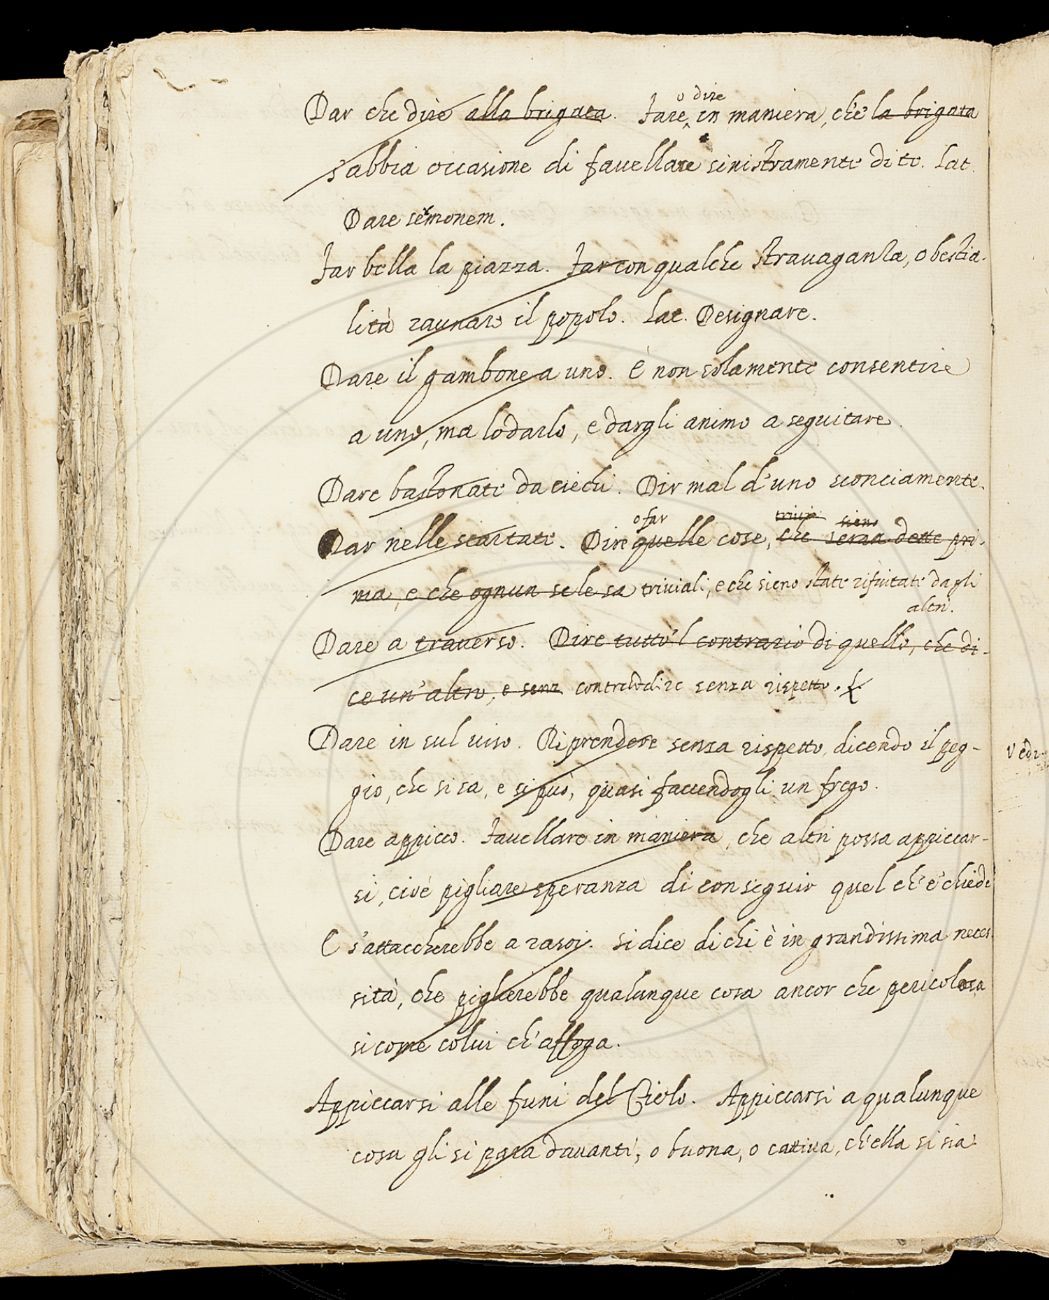 Dar che dire alla brigata. Fare, o dire in maniera, che la brigata
s'abbia occasione di favellare sinistramente di te. Lat.
Dare sermonem.
Far bella la piazza. Far con qualche stravaganza, o bestia-
lità raunare il popolo. Lat. Designare.
Dare il gambone a uno. È non solamente consentire
a uno, ma lodarlo, e dargli animo a seguitare.
Dare bastonate da ciechi. Dir mal d'uno sconciamente.
Dar nelle scartate. Dire o far quelle cose, che sieno dette pri-
ma, e che ognun se le sa triviali, e che sieno state rifiutate dagli
altri.
Dare a traverso. Dire tutto 'l contrario di quello, che di-
ce un'altro, e senz contraddire senza rispetto.
Dare in sul viso. Riprendere senza rispetto, dicendo il peg-
gio, che si sa, e si può, quasi facendogli un frego.
Vedi
Dare appicco. Favellare in maniera, che altri possa appiccar-
si, cioè pigliare speranza di conseguir quel ch'e' chiede
E s'attaccherebbe a rasoj. Si dice di chi è in grandissima neces-
sità, che piglierebbe qualunque cosa ancor che pericolosa
si come colui ch'affoga.
Appiccarsi alle funi del Cielo. Appiccarsi a qualunque
cosa gli si para davanti, o buona, o cattiva, ch'ella si sia